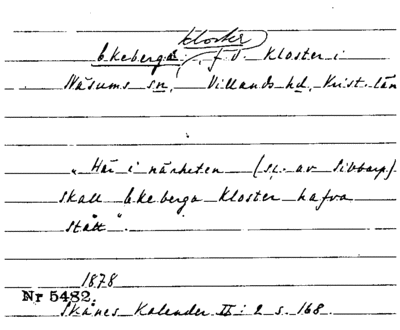 kloster
Ekeberga, f.d. Kloster i
Näsums sn, Villands hd, Krist. län
"Här i närheten (sc. av Sibbarp)
skall Ekeberga Kloster hafva
stått".
1878
Nr 5482.
Skånes Kalender II: 2 s. 168.